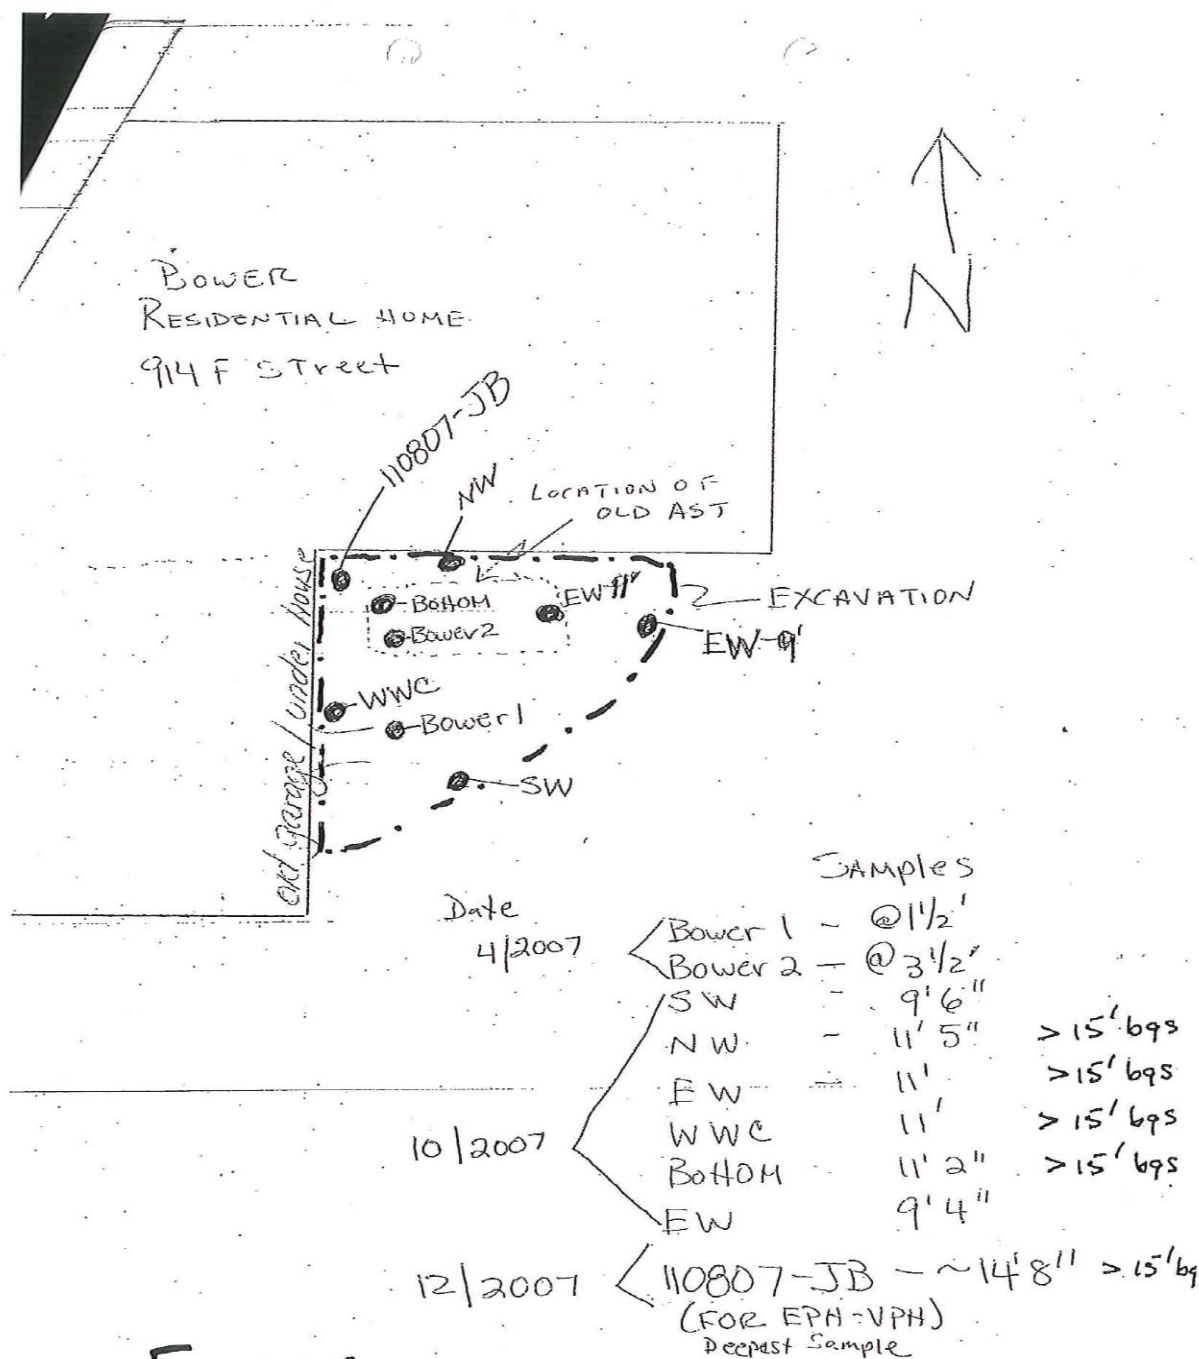 BOWER
RESIDENTIAL HOME
914 F STreet
N
110807-JB
NW
LOCATION OF
OLD AST
BOttOM
Bower 2
EW 11'
EXCAVATION
EW-9'
WWC
Bower 1
SW
old garage / under house
SAMPles
Date
4/2007
Bower 1 - @ 1 1/2'
Bower 2 - @ 3 1/2'
SW - 9' 6"
NW - 11' 5" > 15' bgs
EW - 11' > 15' bgs
10/2007
WWC 11' > 15' bgs
BOttOM 11' 2" > 15' bgs
EW 9' 4"
12/2007
110807-JB - ~14' 8" > 15' bg
(FOR EPH-VPH)
Deepest Sample